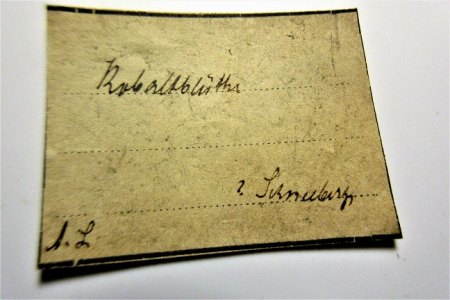 Kobaltblüthe
? Schneeberg
A. L.